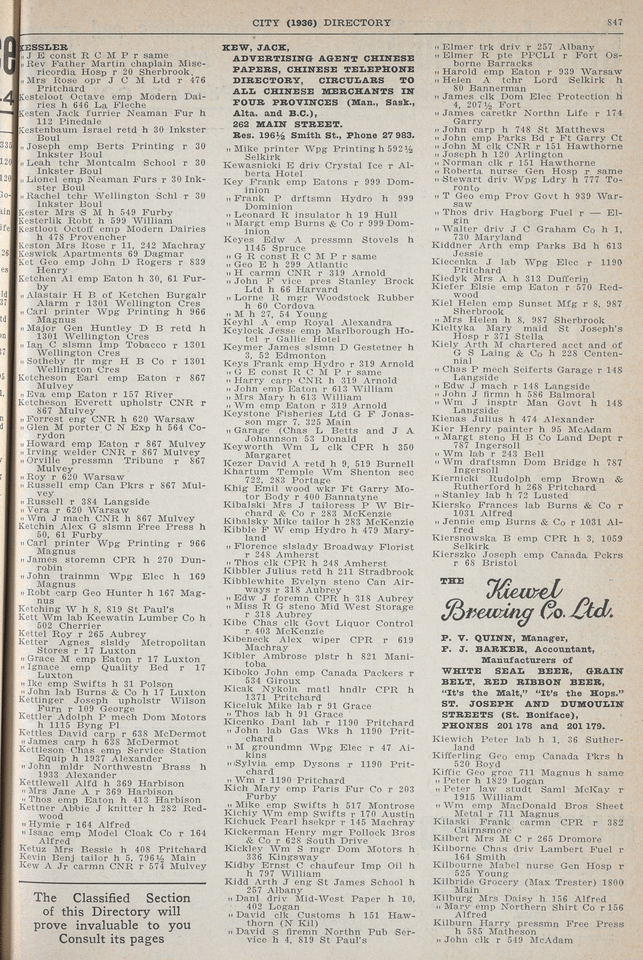 CITY (1936) DIRECTORY 847
KESSLER
" J E const R C M P r same
" Rev Father Martin chaplain Mise-
ricordia Hosp r 20 Sherbrook
" Mrs Rose opr J C M Ltd r 476
Pritchard
Kesteloot Octave emp Modern Dai-
ries h 646 La Fleche
Kesten Jack furrier Neaman Fur h
112 Pinedale
Kestenbaum Israel retd h 30 Inkster
Boul
" Joseph emp Berts Printing r 30
Inkster Boul
" Leah tchr Montcalm School r 30
Inkster Boul
" Lionel emp Neaman Furs r 30 Ink-
ster Boul
" Rachel tchr Wellington Schl r 30
Inkster Boul
Kester Mrs S M h 549 Furby
Kesterlik Robt h 599 William
Kestloot Octoff emp Modern Dairies
h 478 Provencher
Keston Mrs Rose r 11, 242 Machray
Keswick Apartments 69 Dagmar
Ket Geo emp John D Rogers r 839
Henry
Ketchen Al emp Eaton h 30, 61 Fur-
by
" Alastair H B of Ketchen Burgalr
Alarm r 1301 Wellington Cres
" Carl printer Wpg Printing h 966
Magnus
" Major Gen Huntley D B retd h
1301 Wellington Cres
" Ian C slsmn Imp Tobacco r 1301
Wellington Cres
" Sotheby flr mgr H B Co r 1301
Wellington Cres
Ketcheson Earl emp Eaton r 867
Mulvey
" Eva emp Eaton r 157 River
Ketcheson Everett upholstr CNR r
867 Mulvey
" Forrest eng CNR h 620 Warsaw
" Glen M porter C N Exp h 564 Co-
rydon
" Howard emp Eaton r 867 Mulvey
" Irving welder CNR r 867 Mulvey
" Orville pressmn Tribune r 867
Mulvey
" Roy r 620 Warsaw
" Russell emp Can Pkrs r 867 Mul-
vey
" Russell r 384 Langside
" Vera r 620 Warsaw
" Wm J mach CNR h 867 Mulvey
Ketchin Alex G slsmn Free Press h
50, 61 Furby
" Carl printer Wpg Printing r 966
Magnus
" James storemn CPR h 270 Dun-
robin
" John trainmn Wpg Elec h 169
Magnus
" Robt carp Geo Hunter h 167 Mag-
nus
Ketching W h 8, 819 St Paul's
Kett Wm lab Keewatin Lumber Co h
502 Cherrier
Kettel Roy r 265 Aubrey
Ketter Agnes slslady Metropolitan
Stores r 17 Luxton
" Grace M emp Eaton r 17 Luxton
" Ignace emp Quality Bed r 17
Luxton
" Ike emp Swifts h 31 Polson
" John lab Burns & Co h 17 Luxton
Kettinger Joseph upholstr Wilson
Furn r 109 George
Kettler Adolph P mech Dom Motors
h 1115 Byng Pl
Kettles David carp r 638 McDermot
" James carp h 638 McDermot
Kettleson Chas emp Service Station
Equip h 1937 Alexander
" John mldr Northwestn Brass h
1933 Alexander
Kettlewell Alfd h 369 Harbison
" Mrs Jane A r 369 Harbison
" Thos emp Eaton h 413 Harbison
Kettner Abbie J knitter h 282 Red-
wood
" Hymie r 164 Alfred
" Isaac emp Model Cloak Co r 164
Alfred
Ketuz Mrs Bessie h 408 Pritchard
Kevin Benj tailor h 5, 796½ Main
Kew A Jr carmn CNR r 574 Mulvey
The Classified Section
of this Directory will
prove invaluable to you
Consult its pages
KEW, JACK,
ADVERTISING AGENT CHINESE
PAPERS, CHINESE TELEPHONE
DIRECTORY, CIRCULARS TO
ALL CHINESE MERCHANTS IN
FOUR PROVINCES (Man., Sask.,
Alta. and B.C.),
262 MAIN STREET.
Res. 196½ Smith St., Phone 27 983.
" Mike printer Wpg Printing h 592½
Selkirk
Kewasnicki E driv Crystal Ice r Al-
berta Hotel
Key Frank emp Eatons r 999 Dom-
inion
" Frank P drftsmn Hydro h 999
Dominion
" Leonard R insulator h 19 Hull
" Margt emp Burns & Co r 999 Dom-
inion
Keyes Edw A pressmn Stovels h
1145 Spruce
" G R const R C M P r same
" Geo E h 299 Atlantic
" H carmn CNR r 319 Arnold
" John F vice pres Stanley Brock
Ltd h 66 Harvard
" Lorne R mgr Woodstock Rubber
h 60 Cordova
" M h 27, 54 Young
Keyhl A emp Royal Alexandra
Keylock Jesse emp Marlborough Ho-
tel r Gallie Hotel
Keymer James slsmn D Gestetner h
3, 52 Edmonton
Keys Frank emp Hydro r 319 Arnold
" G E const R C M P r same
" Harry carp CNR h 319 Arnold
" John emp Eaton r 613 William
" Mrs Mary h 613 William
" Wm emp Eaton r 319 Arnold
Keystone Fisheries Ltd G F Jonas-
son mgr 7, 325 Main
" Garage (Chas L Betts and J A
Johannson 53 Donald
Keyworth Wm L clk CPR h 350
Margaret
Kezer David A retd h 9, 519 Burnell
Khartum Temple Wm Shenton sec
722, 283 Portage
Khig Emil wood wkr Ft Garry Mo-
tor Body r 400 Bannatyne
Kibalski Mrs J tailoress P W Bir-
chard & Co r 283 McKenzie
Kibalsky Mike tailor h 283 McKenzie
Kibble F W emp Hydro h 479 Mary-
land
" Florence slslady Broadway Florist
r 248 Amherst
" Thos clk CPR h 248 Amherst
Kibbler Julius retd h 211 Stradbrook
Kibblewhite Evelyn steno Can Air-
ways r 318 Aubrey
" Edw J foremn CPR h 318 Aubrey
" Miss R G steno Mid West Storage
r 318 Aubrey
Kibe Chas clk Govt Liquor Control
r 403 McKenzie
Kibeneck Alex wiper CPR r 619
Machray
Kibler Ambrose plstr h 821 Mani-
toba
Kiboko John emp Canada Packers r
534 Giroux
Kicak Nykola matl hndlr CPR h
1371 Pritchard
Kiceluk Mike lab r 91 Grace
" Thos lab h 91 Grace
Kicenko Danl lab r 1190 Pritchard
" John lab Gas Wks h 1190 Prit-
chard
" M groundmn Wpg Elec r 47 Ai-
kins
" Sylvia emp Dysons r 1190 Prit-
chard
" Wm r 1190 Pritchard
Kich Mary emp Paris Fur Co r 203
Furby
" Mike emp Swifts h 517 Montrose
Kichiy Wm emp Swifts r 170 Austin
Kichuck Pearl hsekpr r 145 Machray
Kickerman Henry mgr Pollock Bros
& Co r 628 South Drive
Kickley Wm S mgr Dom Motors h
336 Kingsway
Kidby Ernst C chaufeur Imp Oil h
h 797 William
Kidd Arth J eng St James School h
257 Albany
" Danl driv Mid-West Paper h 10,
402 Logan
" David clk Customs h 151 Haw-
thorn (N Kil)
" David S firemn Northn Pub Ser-
vice h 4, 819 St Paul's
" Elmer trk driv r 257 Albany
" Elmer R pte PPCLI r Fort Os-
borne Barracks
" Harold emp Eaton r 939 Warsaw
" Helen A tchr Lord Selkirk h
80 Bannerman
" James clk Dom Elec Protection h
4, 207½ Fort
" James caretkr Northn Life r 174
Garry
" John carp h 748 St Matthews
" John emp Parks Bd r Ft Garry Ct
" John M clk CNR r 151 Hawthorne
" Joseph h 120 Arlington
" Norman clk r 151 Hawthorne
" Roberta nurse Gen Hosp r same
" Stewart driv Wpg Ldry h 777 To-
ronto
" T Geo emp Prov Govt h 939 War-
saw
" Thos driv Hagborg Fuel r — El-
gin
" Walter driv J C Graham Co h 1,
730 Maryland
Kiddner Arth emp Parks Bd h 613
Jessie
Kiecenka J lab Wpg Elec r 1190
Pritchard
Kiedyk Mrs A h 313 Dufferin
Kiefer Elsie emp Eaton r 570 Red-
wood
Kiel Helen emp Sunset Mfg r 8, 987
Sherbrook
" Mrs Helen h 8, 987 Sherbrook
Kieltyka Mary maid St Joseph's
Hosp r 371 Stella
Kiely Arth M chartered acct and of
G S Laing & Co h 228 Centen-
nial
" Chas P mech Seiferts Garage r 148
Langside
" Edw J mach r 148 Langside
" John J firmn h 586 Balmoral
" Wm J insptr Man Govt h 148
Langside
Kienas Julius h 474 Alexander
Kier Henry painter h 95 McAdam
" Margt steno H B Co Land Dept r
787 Ingersoll
" Wm lab r 243 Bell
" Wm draftsmn Dom Bridge h 787
Ingersoll
Kiernicki Rudolph emp Brown &
Rutherford h 268 Pritchard
" Stanley lab h 72 Lusted
Kiersko Frances lab Burns & Co r
1031 Alfred
" Jennie emp Burns & Co r 1031 Al-
fred
Kiersnowska B emp CPR h 3, 1059
Selkirk
Kierszko Joseph emp Canada Pckrs
r 68 Bristol
THE Kiewel
Brewing Co. Ltd.
P. V. QUINN, Manager,
F. J. BARKER, Accountant,
Manufacturers of
WHITE SEAL BEER, GRAIN
BELT, RED RIBBON BEER,
"It's the Malt," "It's the Hops."
ST. JOSEPH AND DUMOULIN
STREETS (St. Boniface),
PHONES 201 178 and 201 179.
Kiewich Peter lab h 1, 36 Suther-
land
Kifferling Geo emp Canada Pkrs h
520 Boyd
Kiffic Geo groc 711 Magnus h same
" Peter h 1829 Logan
" Peter law studt Saml McKay r
1915 William
" Wm emp MacDonald Bros Sheet
Metal r 711 Magnus
Kilaski Frank carmn CPR r 382
Cairnsmore
Kilbert Mrs M C r 265 Dromore
Kilborne Chas driv Lambert Fuel r
164 Smith
Kilbourne Mabel nurse Gen Hosp r
525 Young
Kilbride Grocery (Max Trester) 1800
Main
Kilburg Mrs Daisy h 156 Alfred
" Mary emp Northern Shirt Co r 156
Alfred
Kilburn Harry pressmn Free Press
h 585 Matheson
" John clk r 549 McAdam